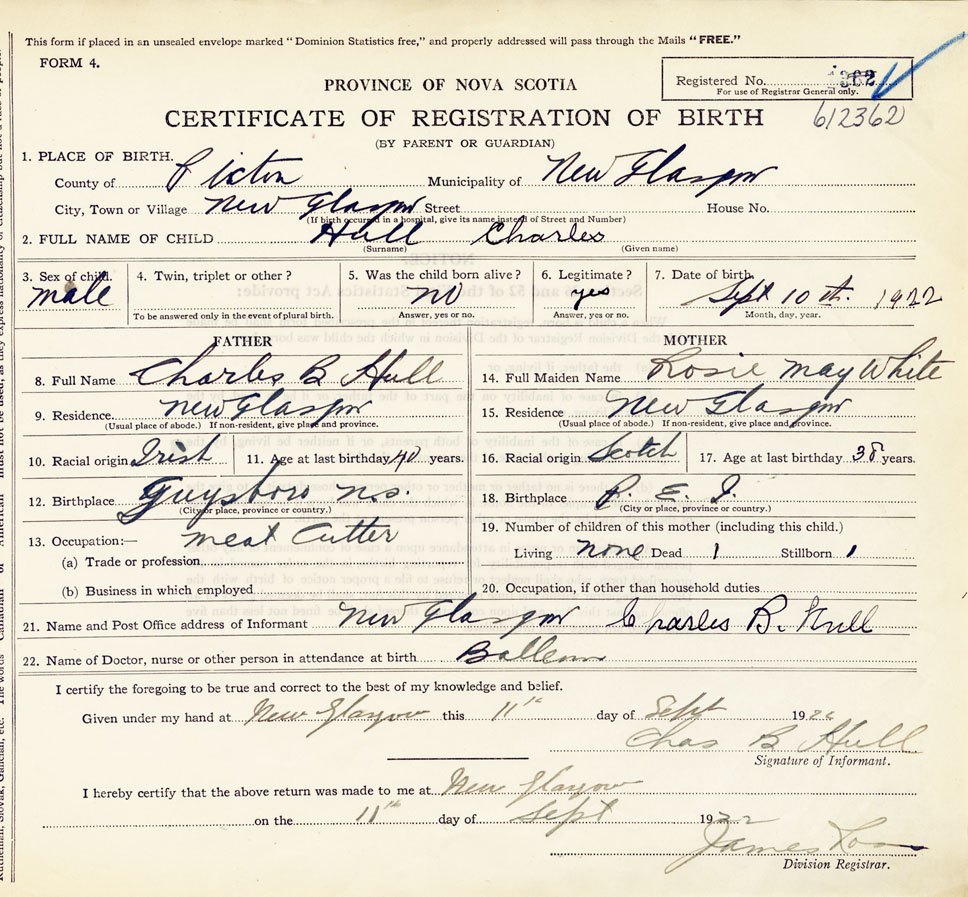 This form if placed in an unsealed envelope marked "Dominion Statistics free," and properly addressed will pass through the Mails "FREE."
FORM 4.
Registered No.
For use of Registrar General only.
612362
PROVINCE OF NOVA SCOTIA
CERTIFICATE OF REGISTRATION OF BIRTH
(BY PARENT OR GUARDIAN)
1. PLACE OF BIRTH.
County of Pictou Municipality of New Glasgow
City, Town or Village New Glasgow Street House No.
(If birth occurred in a hospital, give its name instead of Street and Number)
2. FULL NAME OF CHILD Hull Charles
(Surname) (Given name)
3. Sex of child. 4. Twin, triplet or other? 5. Was the child born alive? 6. Legitimate? 7. Date of birth.
male no yes Sept 10th. 1922
To be answered only in the event of plural birth. Answer, yes or no. Answer, yes or no. Month, day, year.
FATHER MOTHER
8. Full Name Charles B Hull 14. Full Maiden Name Rosie May White
9. Residence New Glasgow 15. Residence New Glasgow
(Usual place of abode.) If non-resident, give place and province. (Usual place of abode.) If non-resident, give place and province.
10. Racial origin Irish 11. Age at last birthday 40 years. 16. Racial origin Scotch 17. Age at last birthday 38 years.
12. Birthplace Guysboro N.S. 18. Birthplace P. E. I.
(City or place, province or country.) (City or place, province or country.)
13. Occupation:— meat Cutter 19. Number of children of this mother (including this child.)
(a) Trade or profession Living none Dead 1 Stillborn 1
(b) Business in which employed 20. Occupation, if other than household duties
21. Name and Post Office address of Informant New Glasgow Charles B. Hull
22. Name of Doctor, nurse or other person in attendance at birth
I certify the foregoing to be true and correct to the best of my knowledge and belief.
Given under my hand at New Glasgow this 11th day of Sept 1922
Chas B Hull
Signature of Informant.
I hereby certify that the above return was made to me at New Glasgow
on the 11th day of Sept 1922
James
Division Registrar.